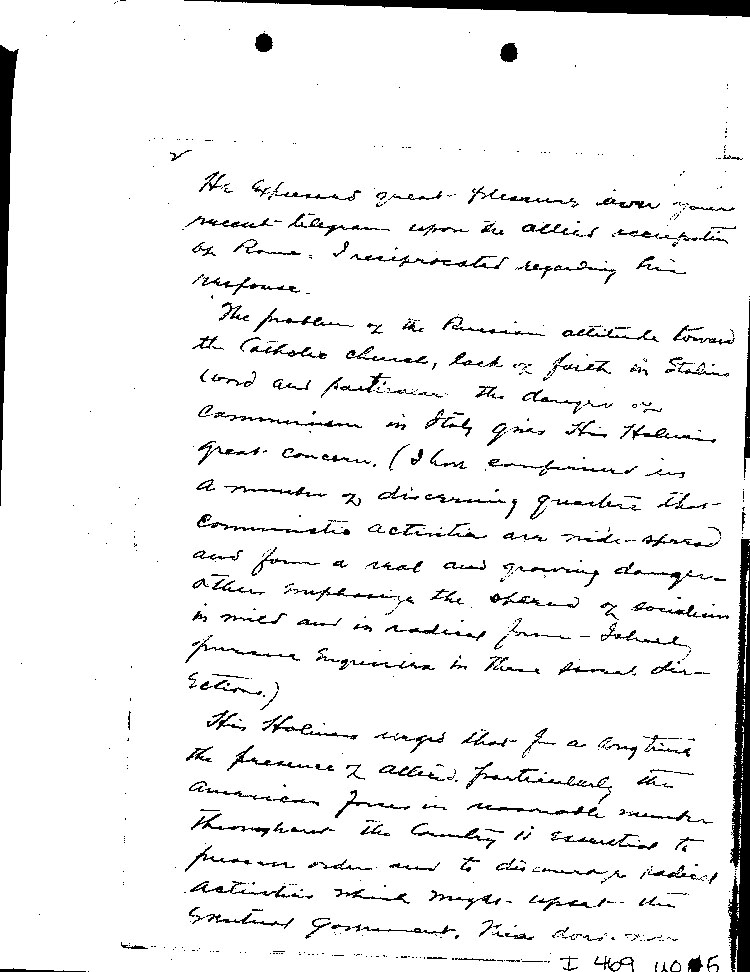 2
He expressed great pleasure over your
recent telegram upon the allied occupation
of Rome. I reciprocated regarding his
response.
The problem of the Russian attitude toward
the Catholic church, lack of faith in Stalins
word and particular the danger of
Communism in Italy gives His Holiness
great concern. (I have confirmed in
a number of discerning quarters that
communistic activities are wide-spread
and form a real and growing danger-
others emphasize the spread of socialism
in mild and in radical form - I shall
pursue inquiries in these several dir-
ections.)
His Holiness urged that for a long time
the presence of allied, particularly the
American forces in reasonable number
throughout the Country is essential to
preserve order and to discourage radical
activities which might upset the
eventual Government.
I 469